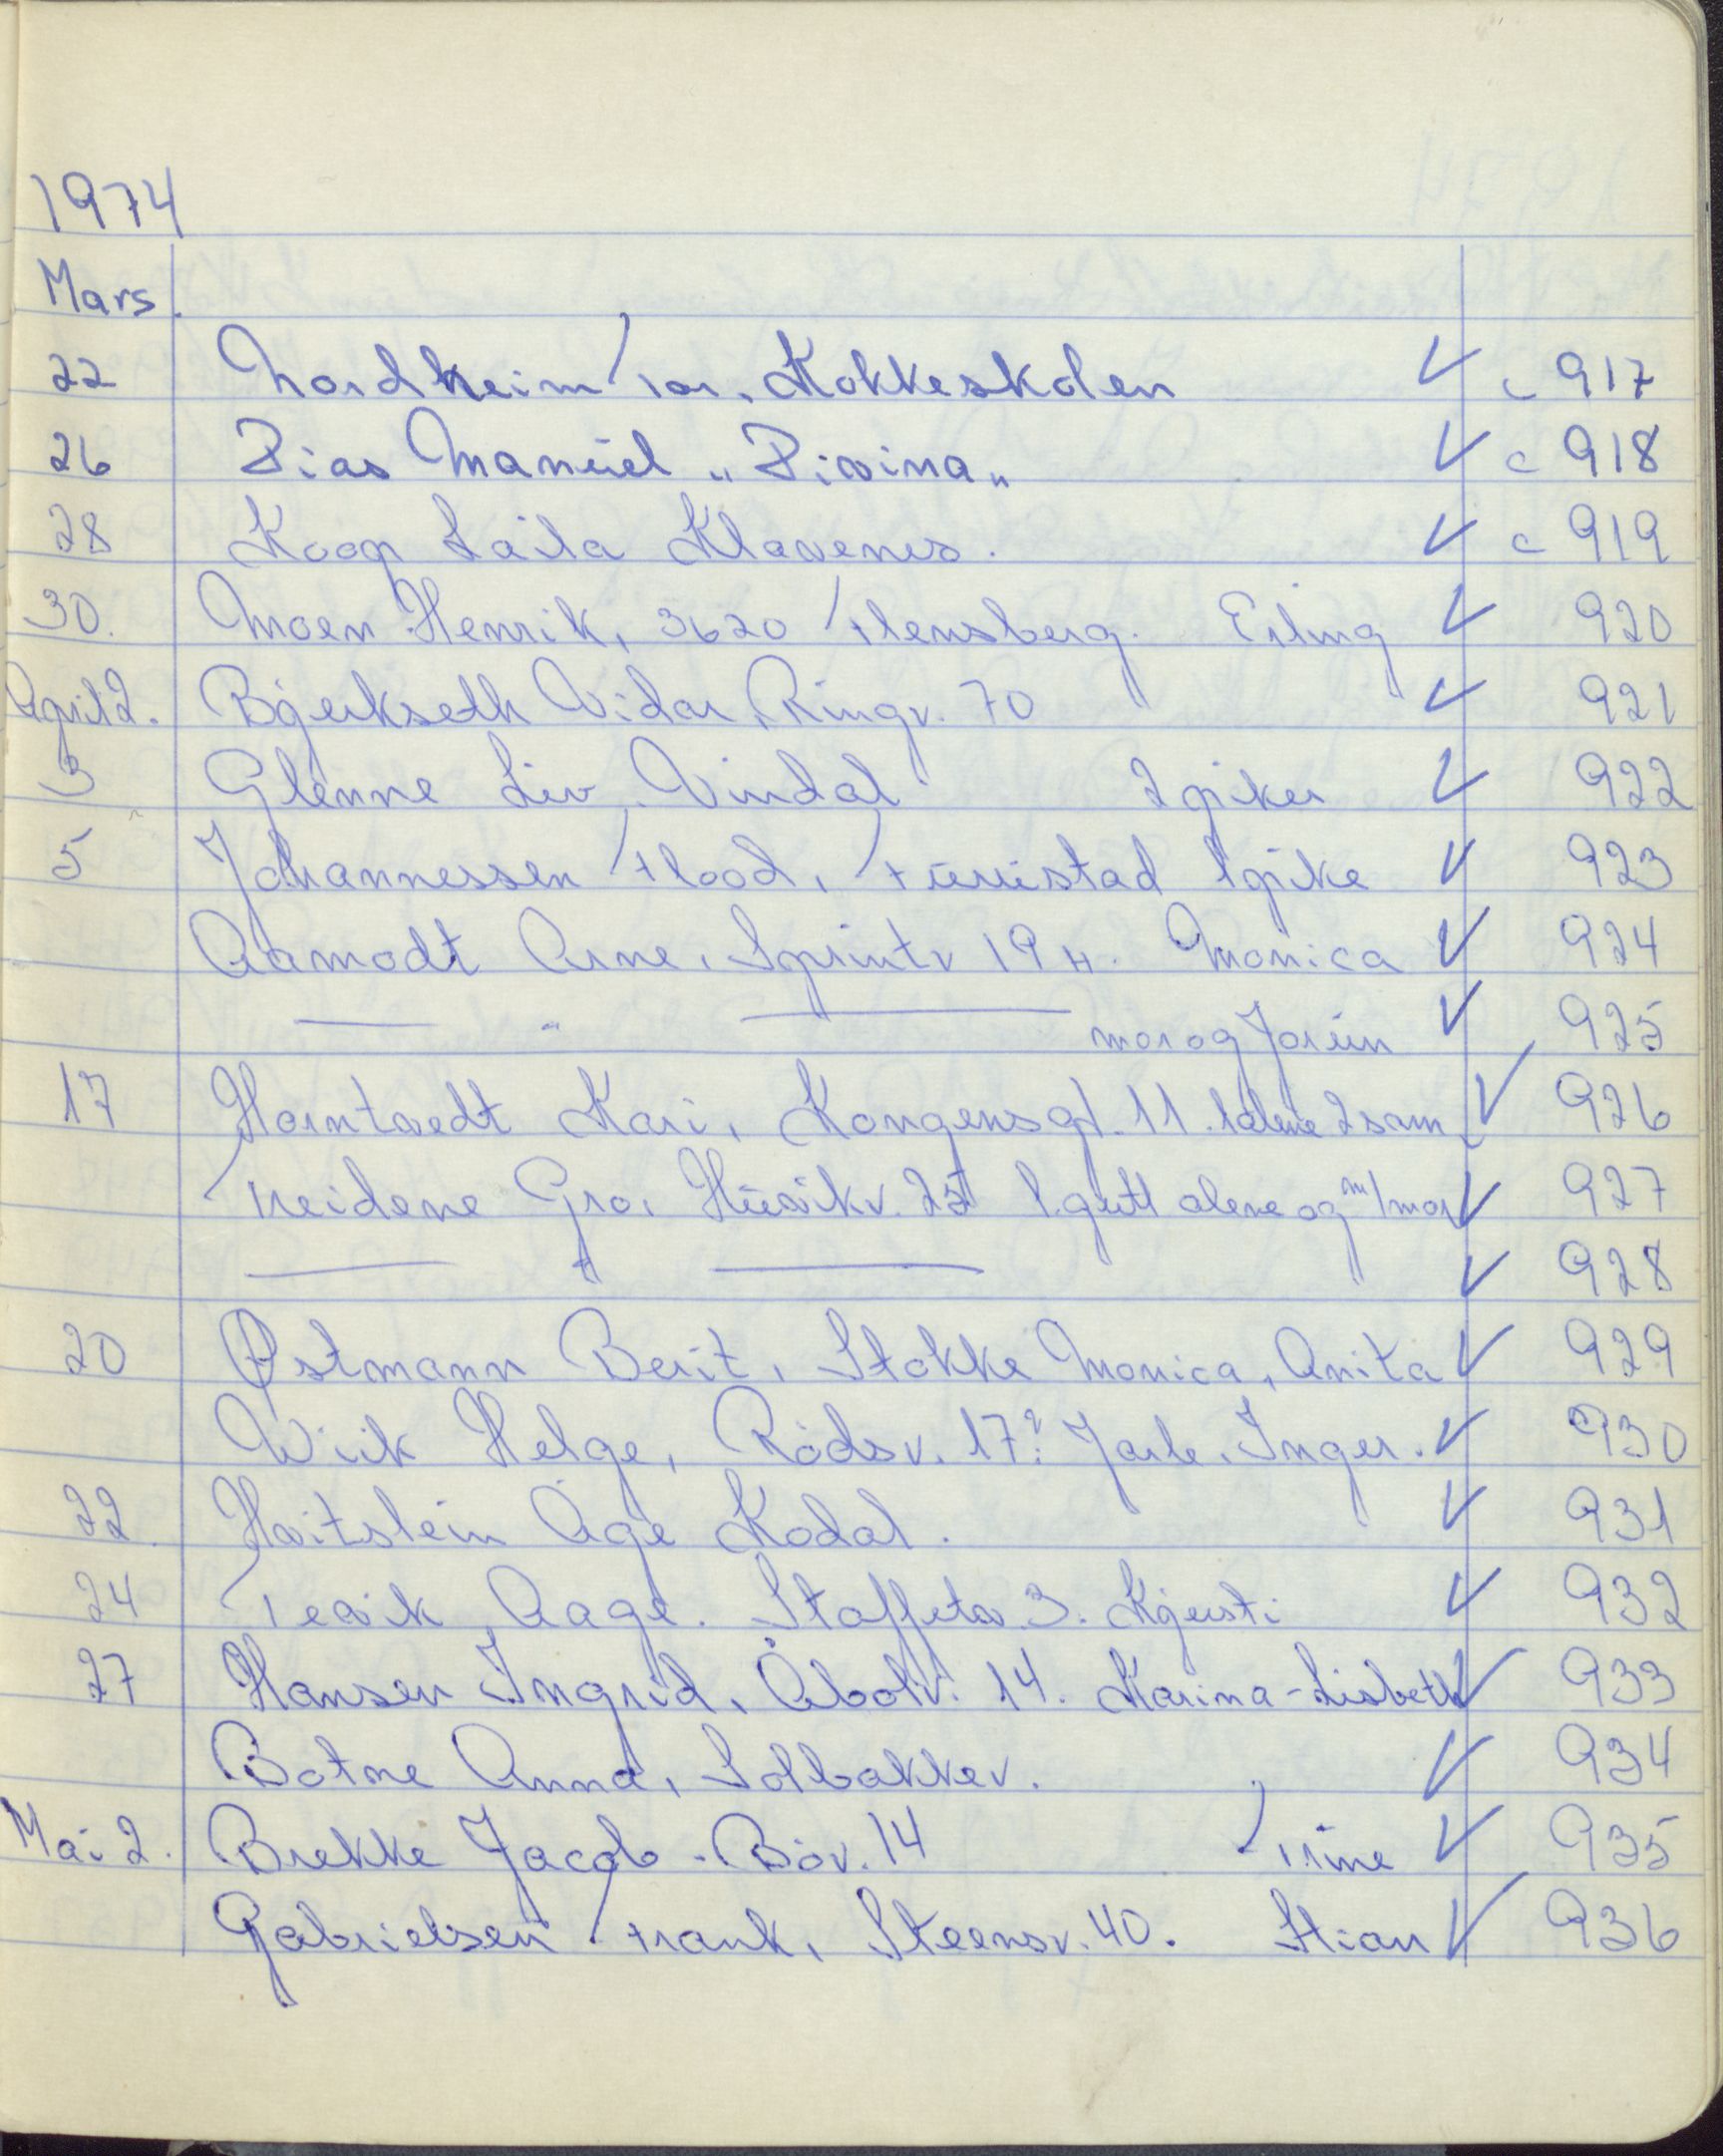 1974
Mars.
22 Nordheim Tor, Kokkeskolen ✓ c 917
26 Dias Manuel "Divina" ✓ c 918
28 Koop Laila Klavenes. ✓ c 919
30. Moen Henrik, 3620 Flensberg. Erling ✓ 920
April 2. Bjerkseth Vidar, Ringv. 70 ✓ 921
3 Glenne Liv, Vindal 2 piker ✓ 922
5 Johannessen Flood, Furustad 1 pike ✓ 923
Aamodt Arne, Sprintv 19 H. Monica ✓ 924
— " — mor og Jorun ✓ 925
17 Horntvedt Kari, Kongensgt. 11. 1 alene 2 sam ✓ 926
Treidene Gro, Husvikv. 25 1 gutt alene og m/mor ✓ 927
— " — ✓ 928
20 Østmann Berit, Stokke Monica, Anita ✓ 929
Wiik Helge, Rødsv. 17? Jarle, Inger. ✓ 930
22. Hvitstein Åge Kodal. ✓ 931
24 Tesvik Aage. Staffetv. 3. Kjersti ✓ 932
27 Hansen Ingrid, Åbolv. 14. Karina-Lisbeth ✓ 933
Botne Anna, Solbakkev. ✓ 934
Mai 2. Brekke Jacob. Bøv. 14 Trine ✓ 935
Gabrielsen Frank, Steensv. 40. Stian ✓ 936